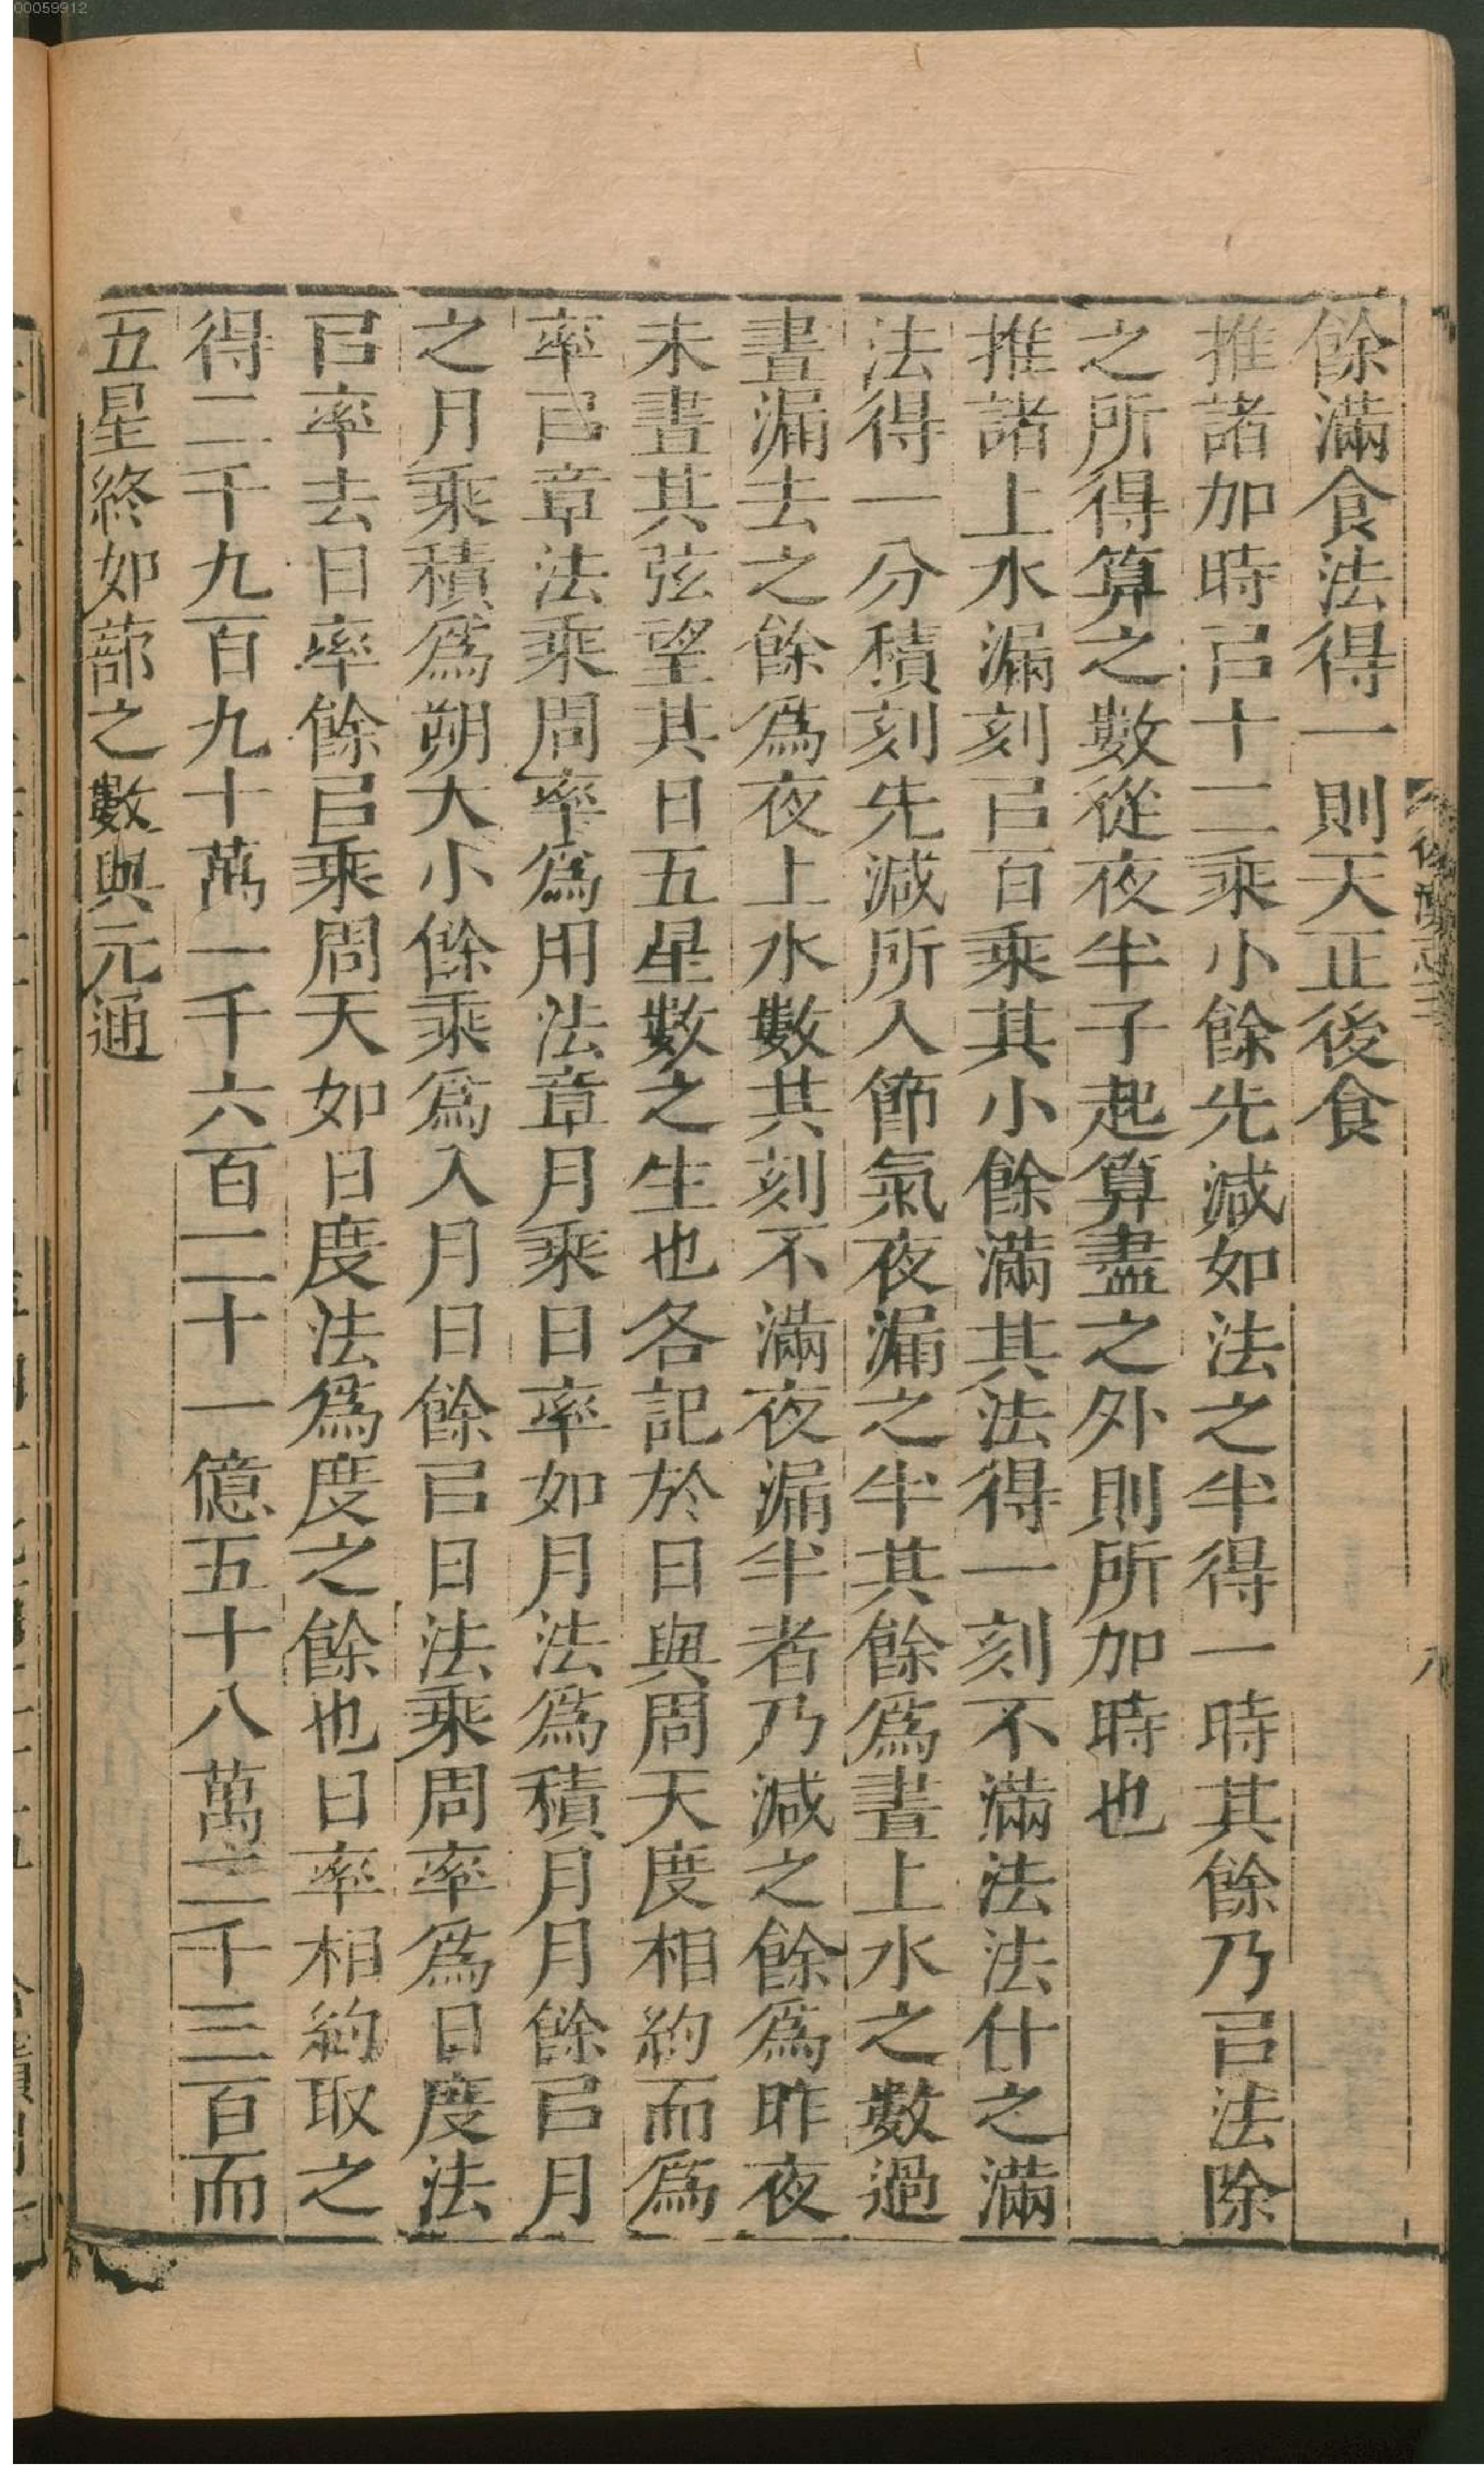 00059912
餘滿食法得一則天正後食
推諸加時㠯十二乘小餘先減如法之半得一時其餘乃㠯法除
之所得算之數從夜半子起算盡之外則所加時也
推諸上水漏刻㠯百乘其小餘滿其法得一刻不滿法法什之滿
法得一分積刻先減所入節氣夜漏之半其餘為晝上水之數過
晝漏去之餘為夜上水數其刻不滿夜漏半者乃減之餘為昨夜
未晝其弦望其日五星數之生也各記於日與周天度相約而為
率㠯章法乘周率為用法章月乘日率如月法為積月月餘㠯月
之月乘積為朔大小餘乘為入月日餘㠯日法乘周率為日度法
㠯率去日率餘㠯乘周天如日度法為度之餘也日率相約取之
得二千九百九十萬一千六百二十一億五十八萬二千三百而
五星終如蔀之數與元通
後漢志三
八